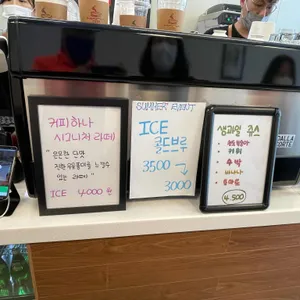 커피하나
시그니처 라떼
"은은한 단맛
진한 우유풍미를 느낄수
있는 라떼"
ICE 4000원
SUMMER EVENT
ICE
콜드브루
3500 →
3000
생과일 쥬스
키위
수박
바나나
토마토
4.500